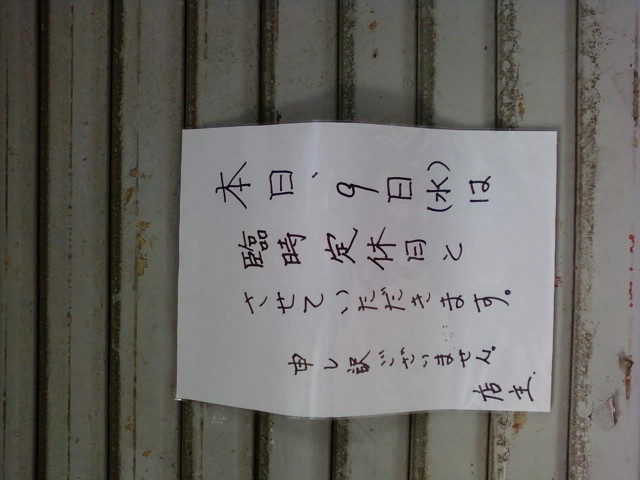 本日、9日(水)は
臨時定休日と
させていただきます。
申し訳ございません。
店主.